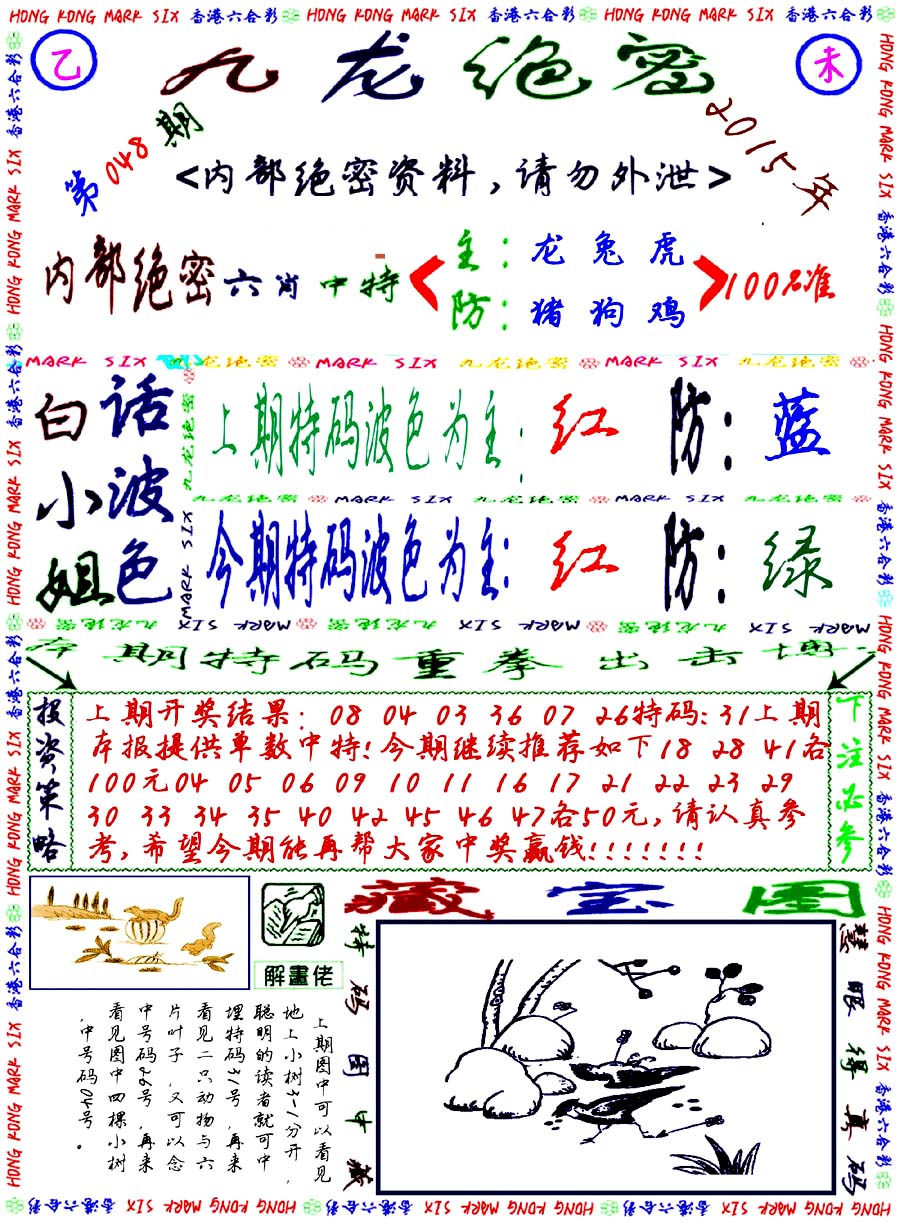 HONG KONG MARK SIX 香港六合彩 HONG KONG MARK SIX 香港六合彩 HONG KONG MARK SIX 香港六合彩
乙 九龙绝密 未
第048期 2015年
<内部绝密资料,请勿外泄>
内部绝密六肖中特
主:龙兔虎
防:猪狗鸡
100%准
MARK SIX 九龙绝密 MARK SIX 九龙绝密 MARK SIX 九龙绝密
白话波色
小姐
上期特码波色为主:红 防:蓝
九龙绝密 MARK SIX 九龙绝密 MARK SIX 九龙绝密
今期特码波色为主:红 防:绿
九龙绝密 MARK SIX 九龙绝密 MARK SIX 九龙绝密 MARK SIX
本期特码重拳出击博
投资策略
上期开奖结果: 08 04 03 36 07 26特码:31上期
本报提供单数中特!今期继续推荐如下18 28 41各
100元04 05 06 09 10 11 16 17 21 22 23 29
30 33 34 35 40 42 45 46 47各50元,请认真参
考,希望今期能再帮大家中奖赢钱!!!!!!!
下注必参
藏宝图
解畫佬
特码图中藏
慧眼得真码
上期图中可以看见
地上小树3-1分开,
聪明的读者就可中
埋特码31号,再来
看见二只动物与六
片叶子,又可以念
中号码26号,再来
看见图中四棵小树
,中号码04号。
HONG KONG MARK SIX 香港六合彩 HONG KONG MARK SIX 香港六合彩 HONG KONG MARK SIX 香港六合彩